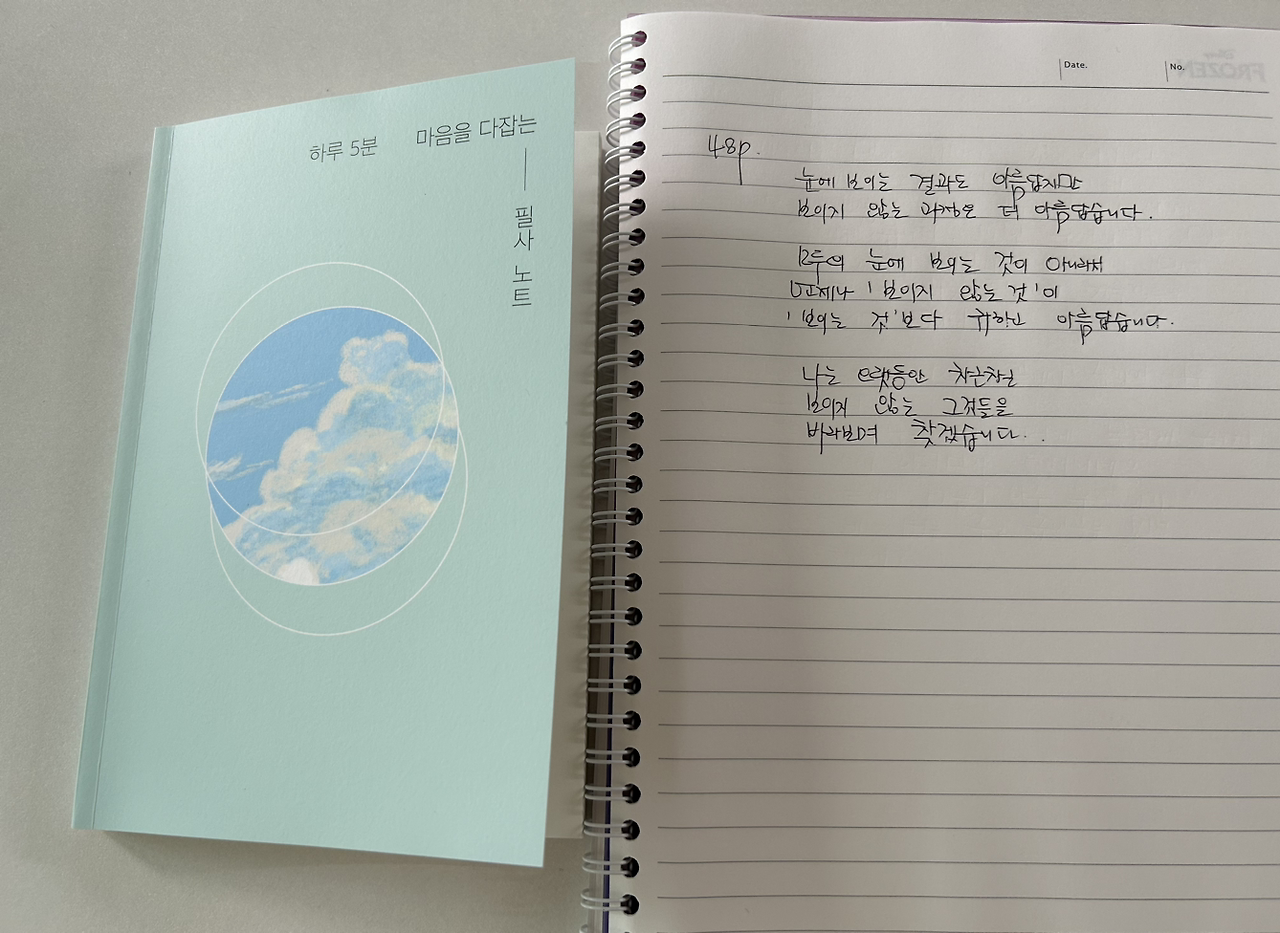 하루 5분 마음을 다잡는
필사 노트
Date.
No.
FROZEN
48p.
눈에 보이는 결과도 아름답지만
보이지 않는 과정은 더 아름답습니다.
모두의 눈에 보이는 것이 아니라서
언제나 '보이지 않는 것'이
'보이는 것'보다 귀하고 아름답습니다.
나는 오랫동안 차근차근
보이지 않는 그것들을
바라보며 찾겠습니다..